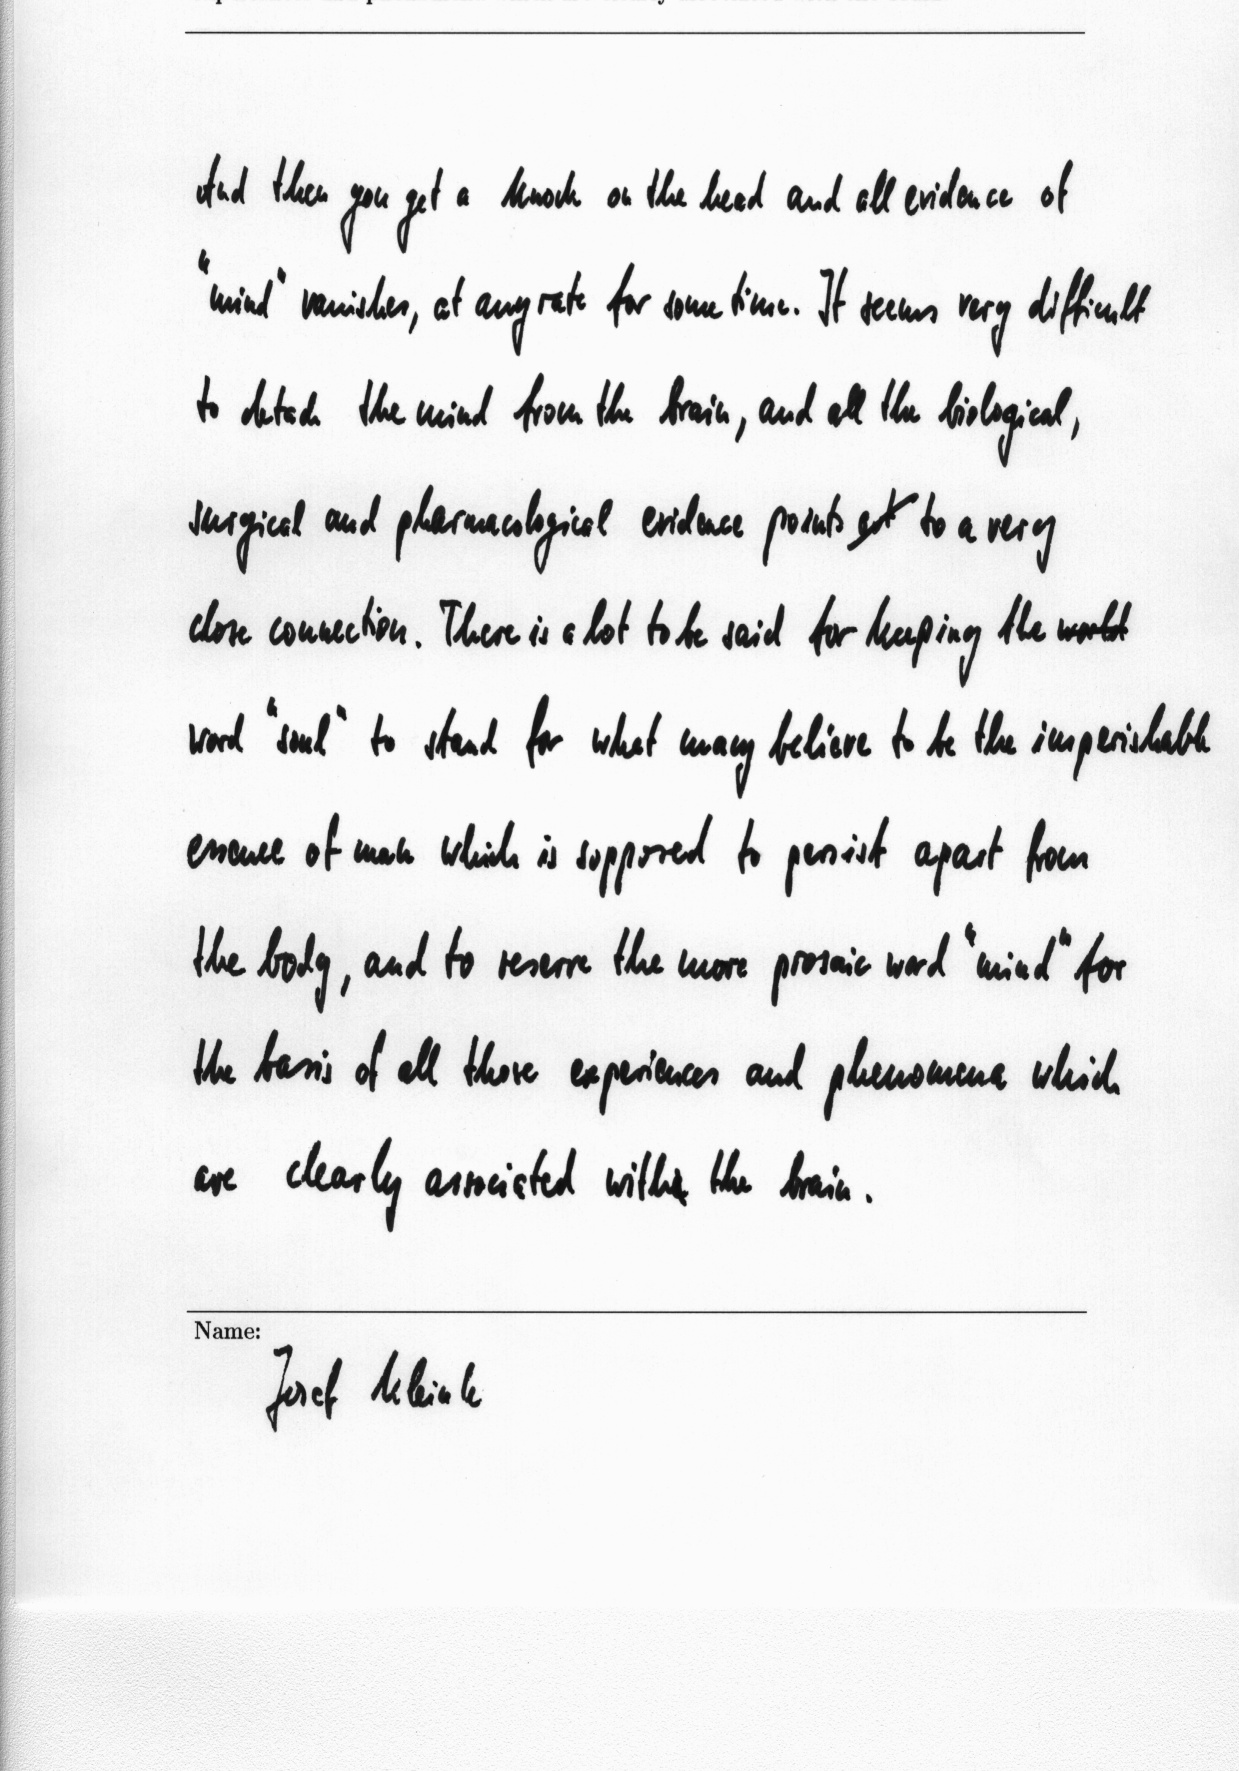 And then you get a knock on the head and all evidence of
"mind" vanishes, at any rate for some time. It seems very difficult
to detach the mind from the brain, and all the biological,
surgical and pharmacological evidence points to a very
close connection. There is a lot to be said for keeping the world
word "soul" to stand for what many believe to be the imperishable
essence of man which is supposed to persist apart from
the body, and to reserve the more prosaic word "mind" for
the basis of all those experiences and phenomena which
are clearly associated with the brain.
Name:
Josef